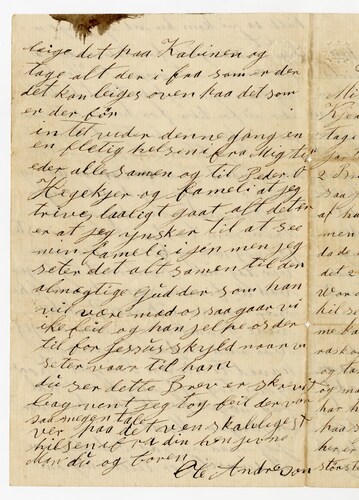 leige det paa Kabinen og
tage alt der i fra som er der
det kan leiges oven paa det som
er der før
intet vider denne gang en
en fletig helsen i fra Mig til
eder alle samen og til Peder O
Hegekjer og fameli at jeg
trives laaligt gaat alt det
er at jeg ynsker til at see
min fameli i jen men jeg
seter det alt samen til den
almægtige gud der som han
vil være med os saa gaar vi
ike feil og han jelpe os der
til for Jessus skyld naar vi
seter vaar til ham
du ser dette Brev er skrvit
bag vent jeg tog feil der vor
saa megen tale
ver paa det venskabligest
hilsen fra din hen
Man du og boren
Ole Andreson
Mi
Kje
tag
jan
2
saa
af ha
men
dade
det 2
Wor
hil se
me ka
rask o
og ta
og m
har
saa
har
er he
størst